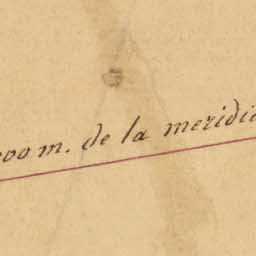 00 m. de la meridi